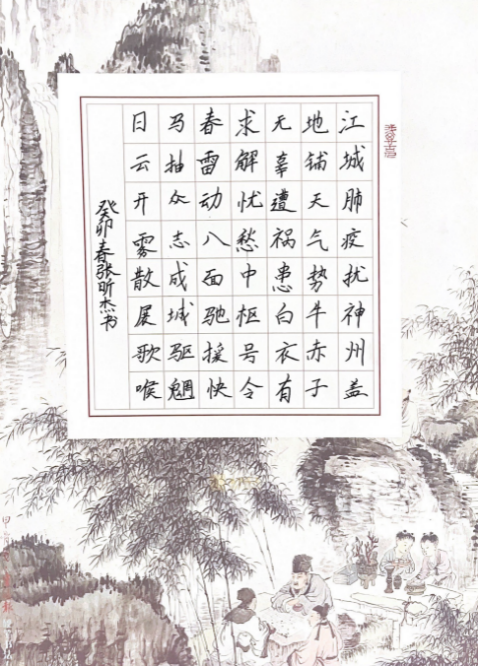 江城肺疫扰神州盖
地铺天气势牛赤子
无辜遭祸患白衣有
求解忧愁中枢号令
春雷动八面驰援快
马抽众志成城驱魍
日云开雾散展歌喉
癸卯春张昕杰书